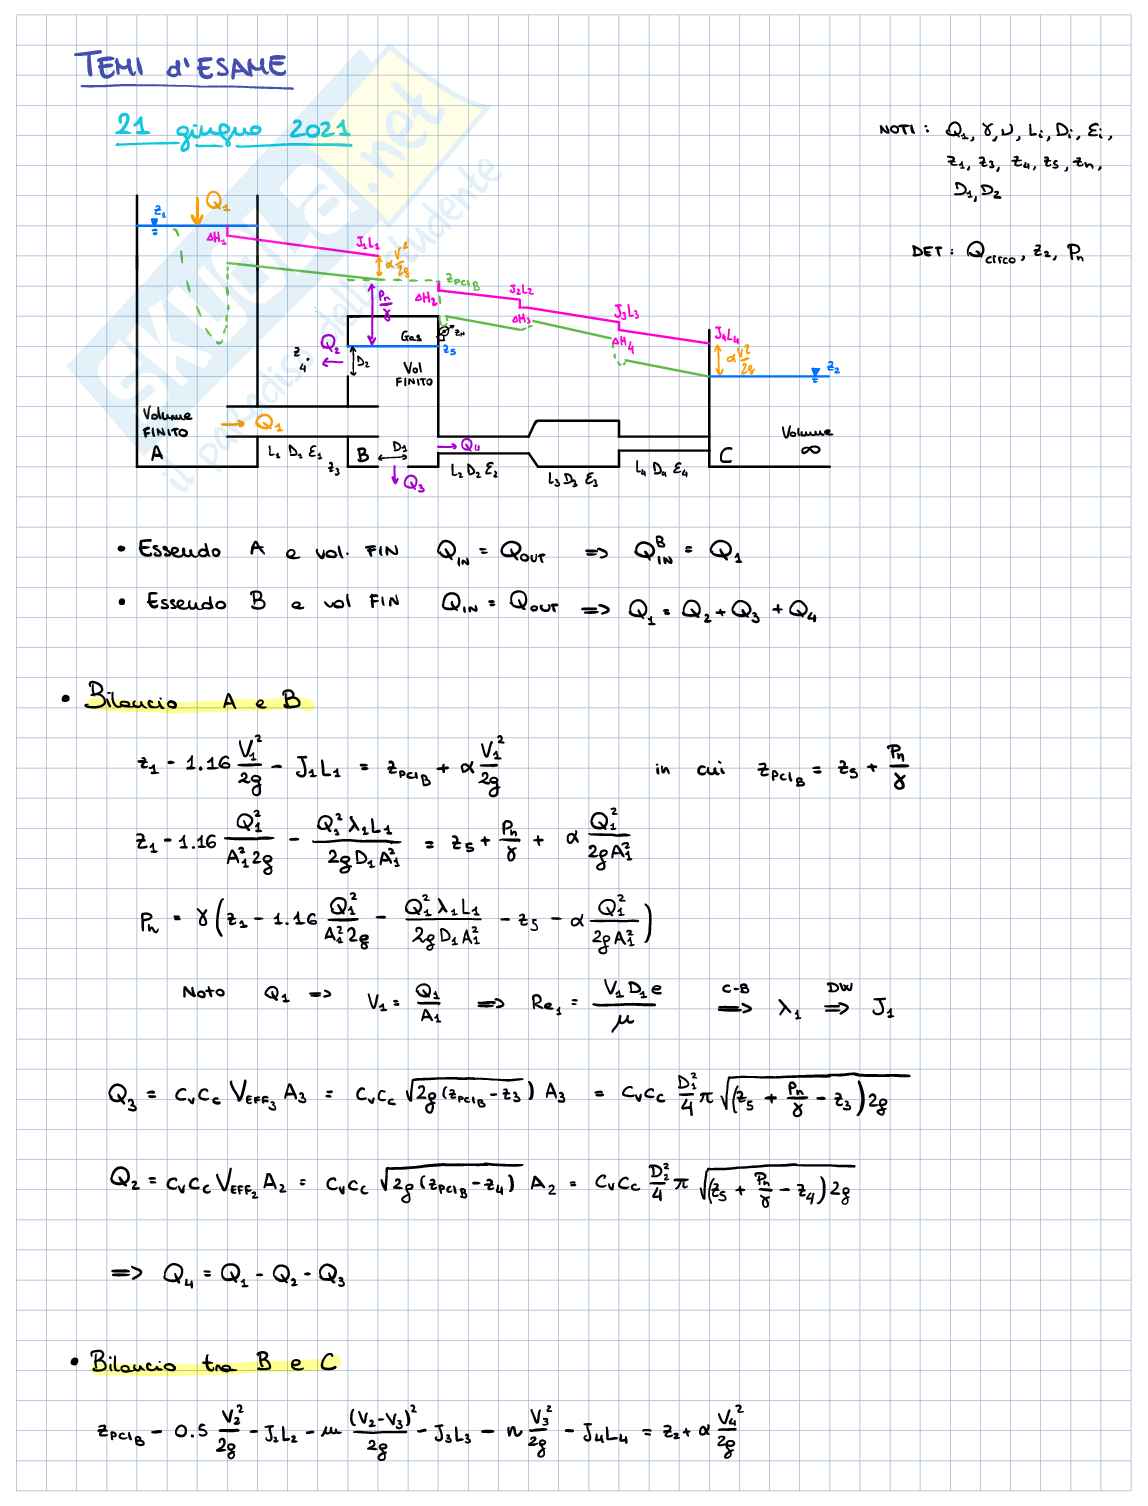 TEMI d'ESAME
21 giugno 2021
NOTI : Q₁, γ, ν, Lᵢ, Dᵢ, Ɛᵢ,
z₁, z₃, z₄, z₅, zₙ,
D₁, D₂
DET : Q circo, z₂, Pₙ
z₁ Q₁
ΔH₁ J₁L₁ α V²/2g
z PCI B
Pₙ/γ ΔH₂ J₂L₂ ΔH₃ J₃L₃ ΔH₄ J₄L₄ α V²/2g z₂
Q₂ Gas zₙ
z₄ D₂ z₅
Vol
FINITO
Volume
FINITO
Q₁
A L₁ D₁ Ɛ₁ z₃ B D₁ Q₄ L₂ D₂ Ɛ₂ L₃ D₃ Ɛ₃ L₄ D₄ Ɛ₄ C
Q₃
Volume
∞
SKUOLA.net
• Essendo A e vol. FIN Q IN = Q OUT => Q IN ᴮ = Q₁
• Essendo B e vol FIN Q IN = Q OUT => Q₁ = Q₂ + Q₃ + Q₄
• Bilancio A e B
z₁ - 1.16 V₁²/2g - J₁L₁ = z PCI B + α V₁²/2g in cui z PCI B = z₅ + Pₙ/γ
z₁ - 1.16 Q₁²/A₁²2g - Q₁²λ₁L₁/2gD₁A₁² = z₅ + Pₙ/γ + α Q₁²/2gA₁²
Pₙ = γ (z₁ - 1.16 Q₁²/A₁²2g - Q₁²λ₁L₁/2gD₁A₁² - z₅ - α Q₁²/2gA₁²)
Noto Q₁ => V₁ = Q₁/A₁ => Re₁ = V₁D₁ρ/μ C-B => λ₁ DW => J₁
Q₃ = CvCc V EFF₃ A₃ = CvCc √2g(z PCI B - z₃) A₃ = CvCc D₁²/4 π √(z₅ + Pₙ/γ - z₃)2g
Q₂ = CvCc V EFF₂ A₂ = CvCc √2g(z PCI B - z₄) A₂ = CvCc D₂²/4 π √(z₅ + Pₙ/γ - z₄)2g
=> Q₄ = Q₁ - Q₂ - Q₃
• Bilancio tra B e C
z PCI B - 0.5 V₂²/2g - J₂L₂ - m (V₂-V₃)²/2g - J₃L₃ - n V₃²/2g - J₄L₄ = z₂ + α V₄²/2g